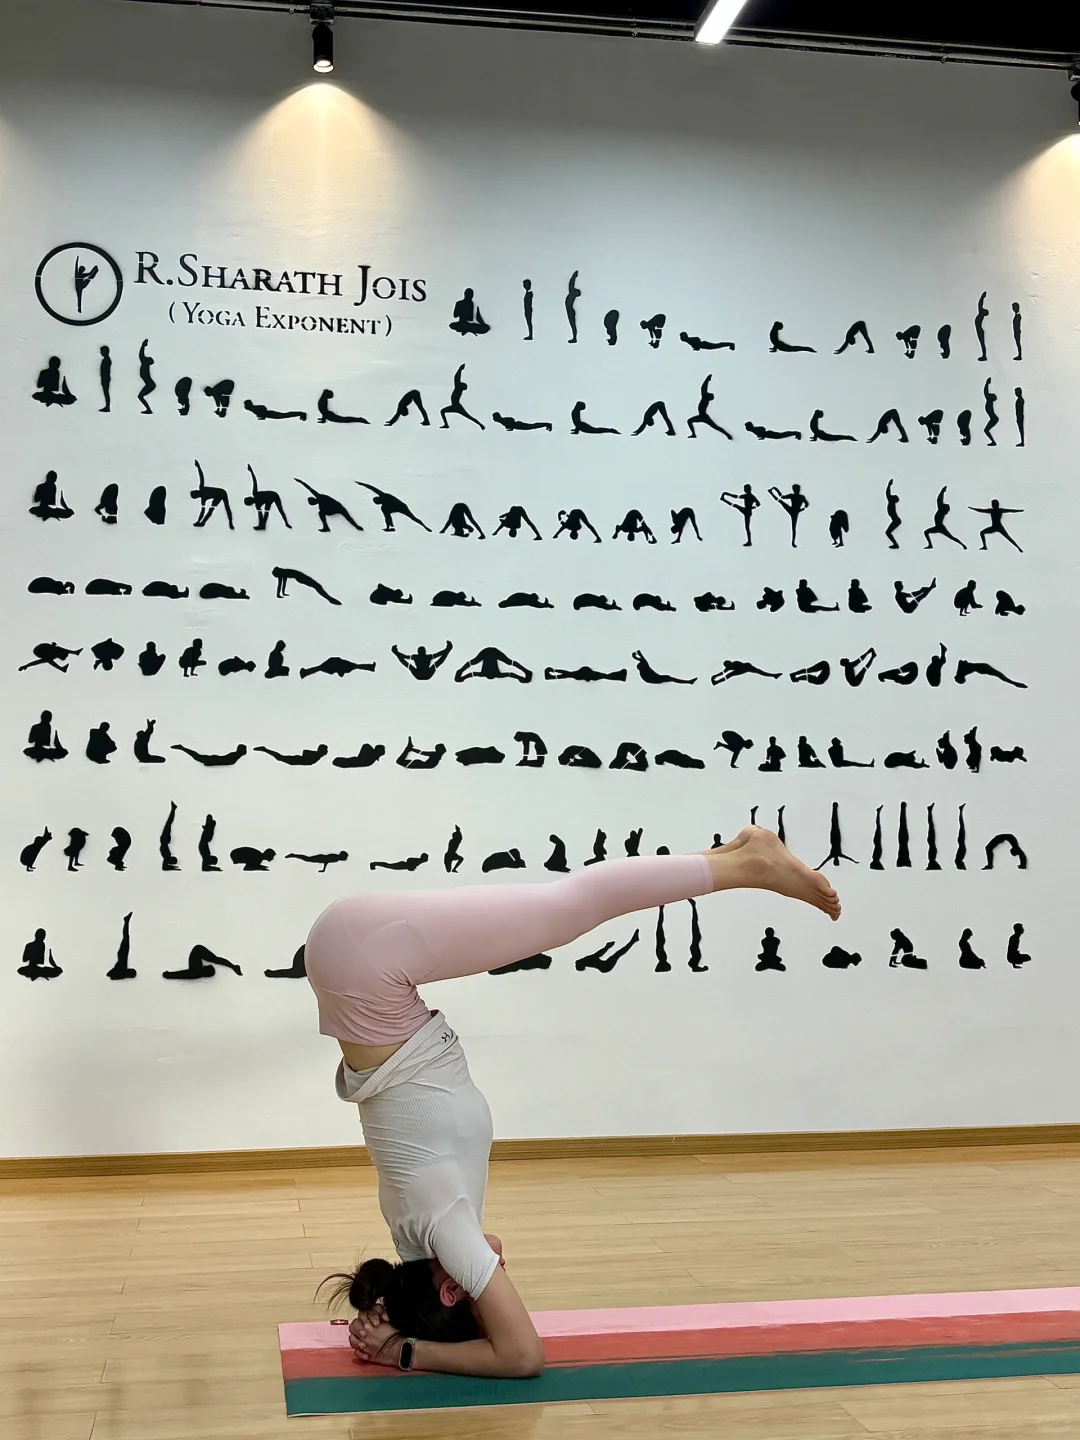 R.SHARATH JOIS
(YOGA EXPONENT)